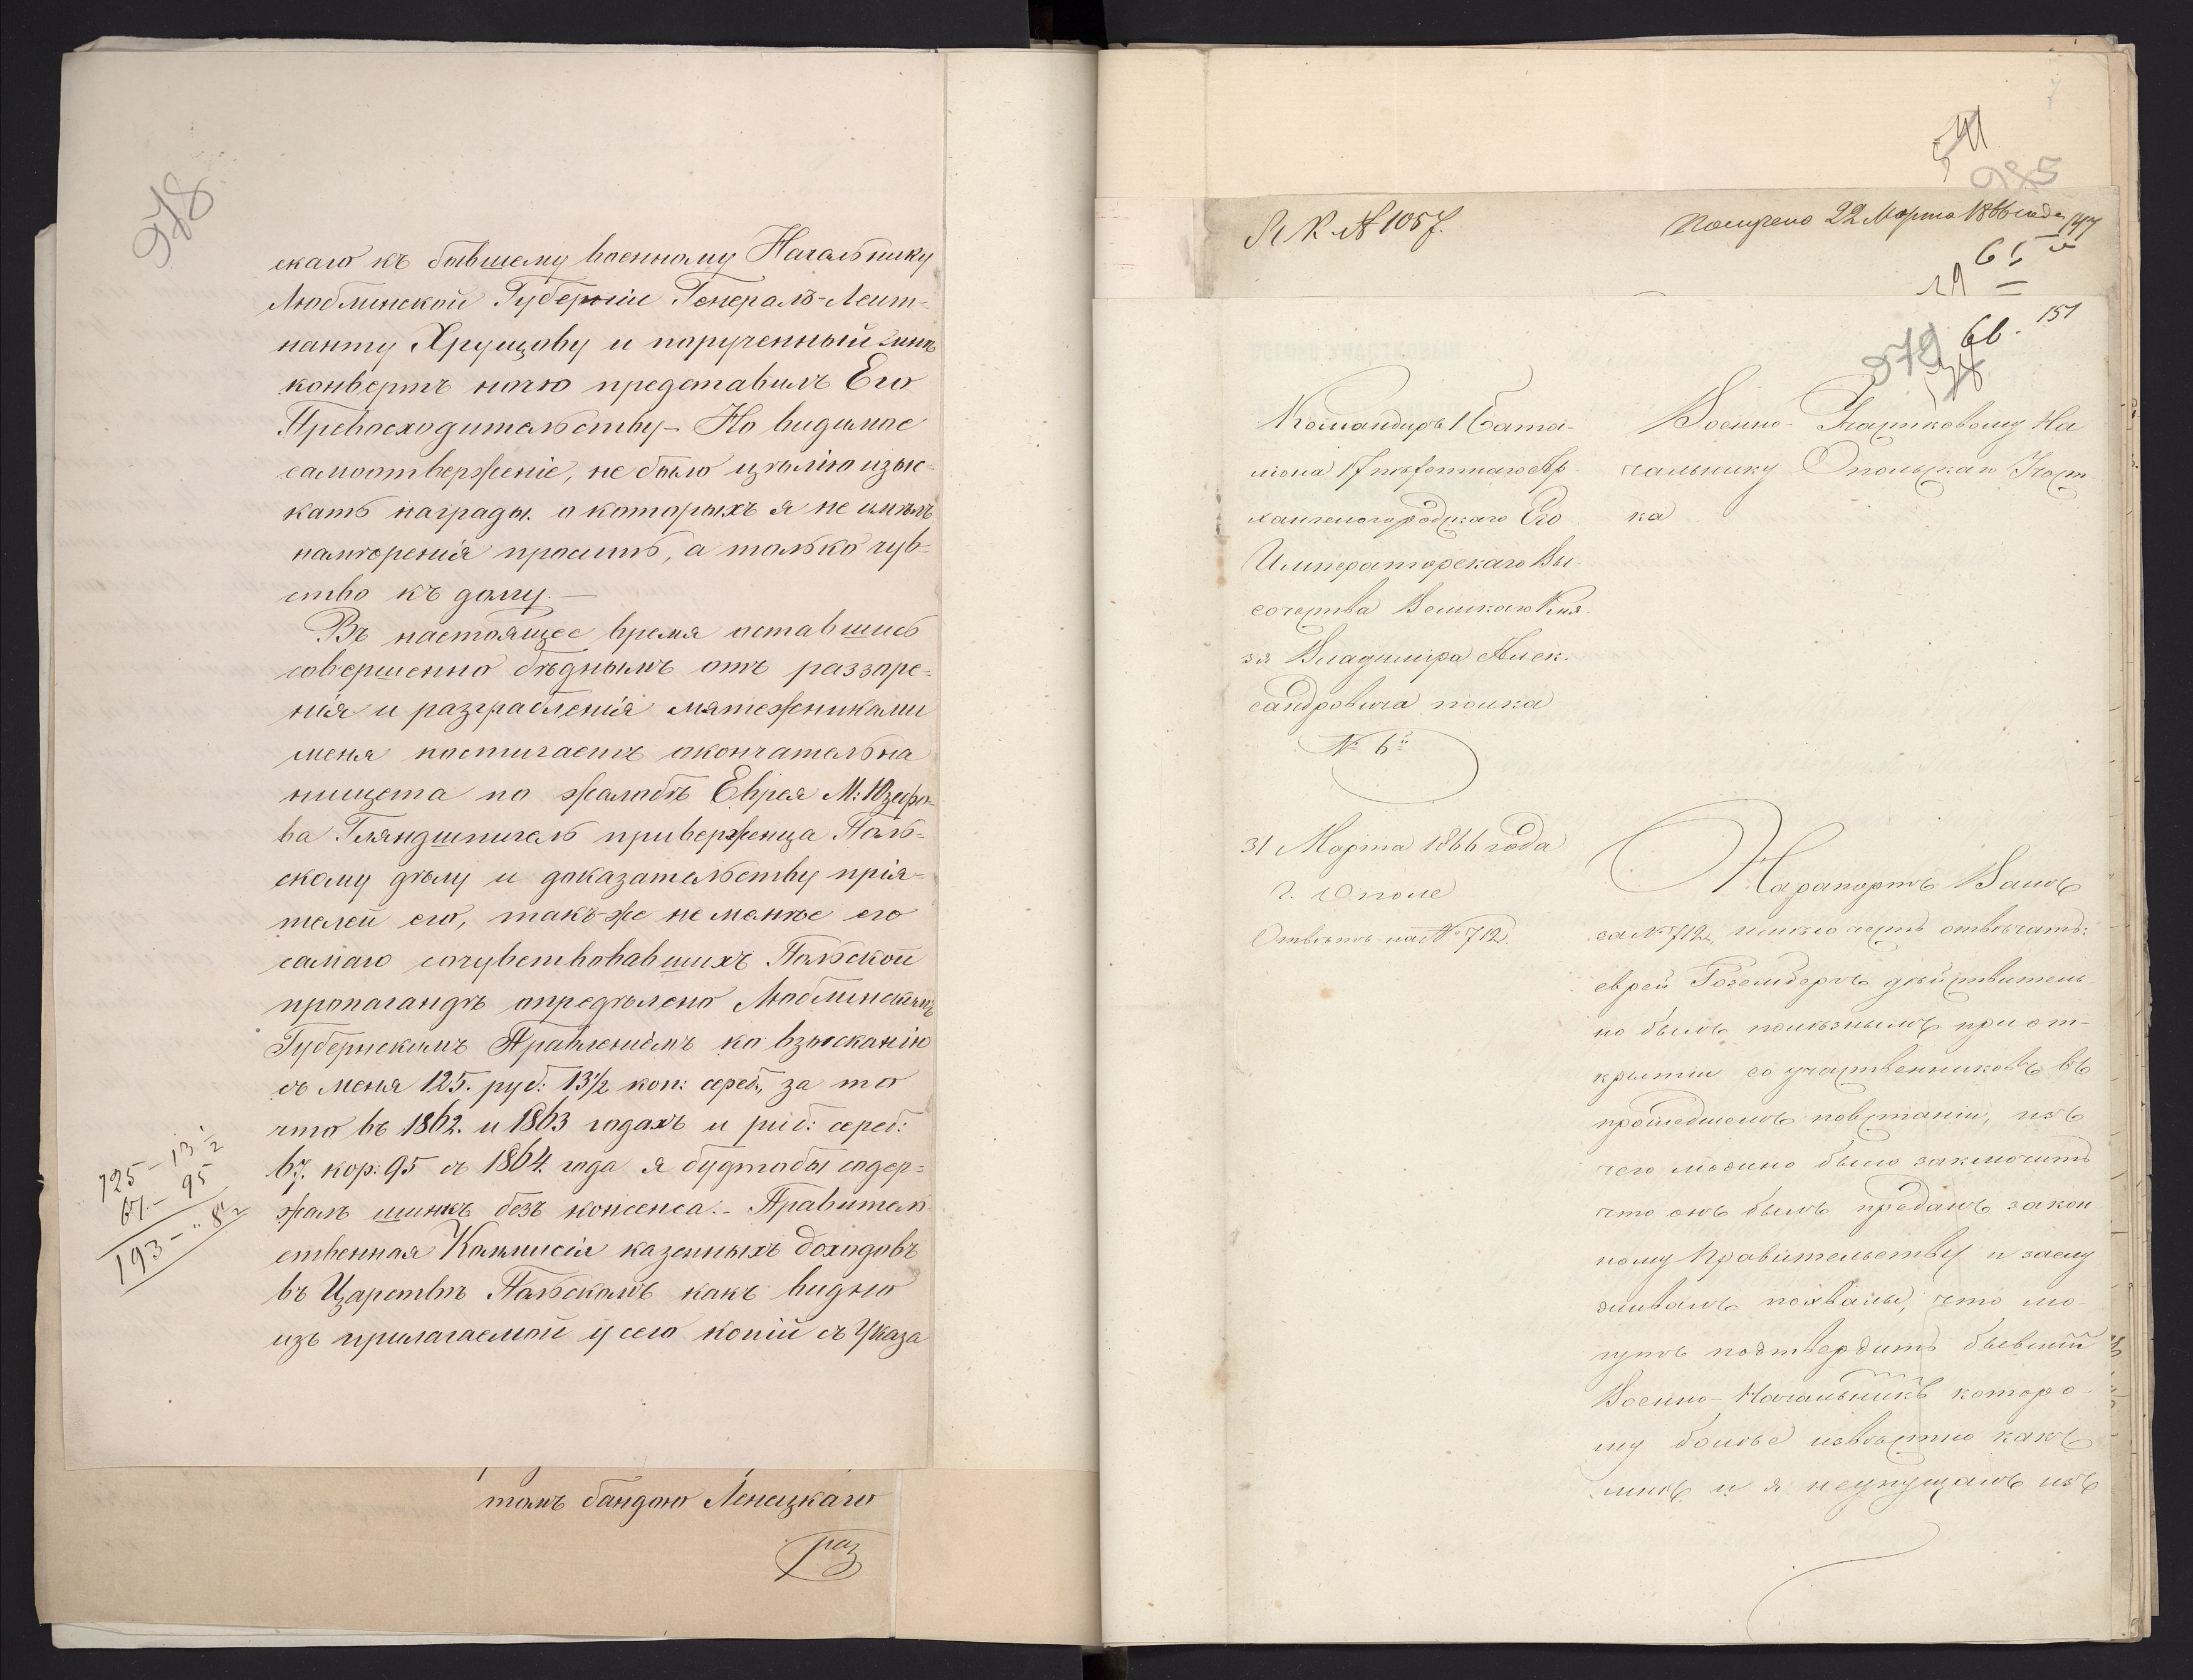 978
скаго къ бывшему военному Начальнику
Люблинской Губерніи Генералъ-Лейт-
нанту Хрущову и порученный мнѣ
конвертъ ночю представилъ Его
Превосходительству – Но видимое
самоотверженіе, не было цѣлію изыс-
кать награды. о которыхъ я не имѣлъ
намѣренія просить, а только чув-
ство къ долгу. –
Въ настоящее время оставшись
совершенно бѣднымъ отъ раззоре-
нія и разграбленія мятежниками
меня постигаетъ окончательна
нищета по жалобѣ Еврея М: Юзефо-
ва Гляндшпигель приверженца Поль-
скому дѣлу и доказательству прія-
телей его, такъ-же не менѣе его
самаго сочувствовавшихъ Польской
пропагандѣ опредѣлено Люблинскимъ
Губернскимъ Правленіемъ ко взысканію
съ меня 125. руб: 13½ коп: сереб., за то
что въ 1862. и 1863 годахъ и руб: сереб:
67. кор: 95 съ 1864 года я будтобы содер-
жалъ шинкъ безъ консенса. – Правитель-
ственная Коммисія казенныхъ доходовъ
въ Царствѣ Польскомъ какъ видно
изъ прилагаемой у сего копіи съ Указа
125 – 13½
67 – 95
193 – " 8½
томъ бандою Ленецкаго
раз
541
985
№ 1057.
Получено 22 Марта 1866 года
147
65
29
151
66.
979
Командиръ 1 Бата-
ліона 17 пѣхотнаго Ар-
хангелогородскаго Его
Императорскаго Вы-
сочества Великаго Кня-
зя Владиміра Алек-
сандровича полка
№ 6й
31 Марта 1866 года
г. Ополе
Отвѣтъ на № 712.
Военно-Участковому На
чальнику Опольскаго Участ
ка
На рапортъ Вашъ
за № 712, имѣю честь отвѣчать:
еврей Розембергъ дѣйствитель
но былъ полезнымъ при от-
крытіи со учаственниковъ въ
прошедшемъ повстаніи, изъ
чего можно было заключить
что онъ былъ преданъ закон
ному Правительству и заслу
живалъ похвалы, что мо-
гутъ подтвердить бывшій
Военно-Начальникъ которо-
му болѣе извѣстно какъ
мнѣ и я неупущалъ изъ